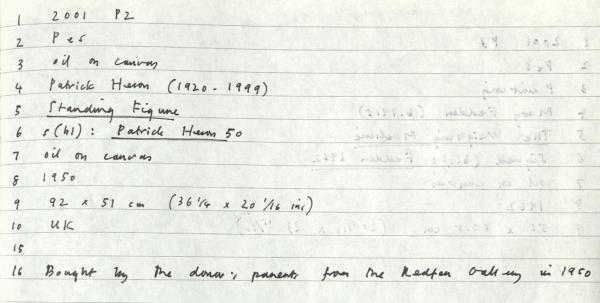 1 2001 P2
2 Pes
3 oil on canvas
4 Patrick Heron (1920 - 1999)
5 Standing Figure
6 s(bl): Patrick Heron 50
7 oil on canvas
8 1950
9 92 x 51 cm (36 1/4 x 20 1/16 ins)
10 UK
15
16 Bought by the donor's parents from the Redfern Gallery in 1950